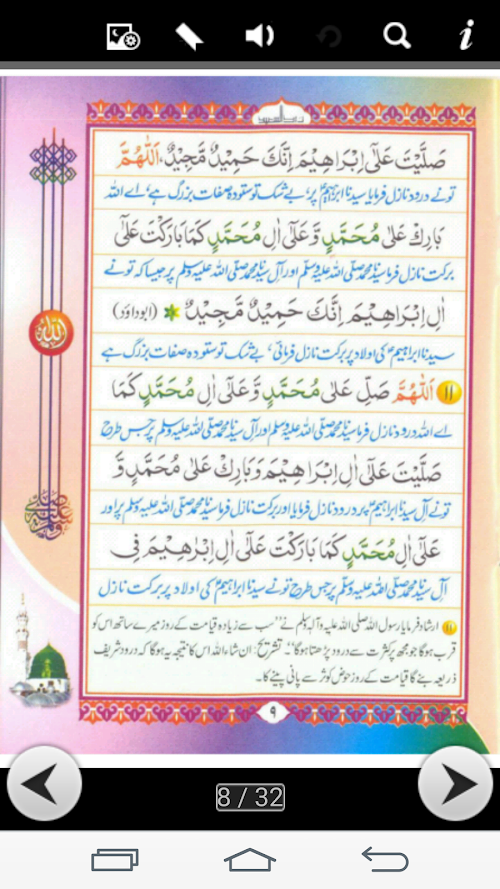 صَلَّيْتَ عَلٰٓى اِبْرَاهِيْمَ اِنَّكَ حَمِيْدٌ مَّجِيْدٌ، اَللّٰهُمَّ
تو نے درود نازل فرمایا سیدنا ابراہیمؑ پر، بے شک تو ستودہ صفات بزرگ ہے، اے اللہ
بَارِكْ عَلٰى مُحَمَّدٍ وَّعَلٰٓى اٰلِ مُحَمَّدٍ كَمَا بَارَكْتَ عَلٰٓى
برکت نازل فرما سیدنا محمد صلی اللہ علیہ وسلم اور آل سیدنا محمد صلی اللہ علیہ وسلم پر جیسا کہ تو نے
اٰلِ اِبْرَاهِيْمَ اِنَّكَ حَمِيْدٌ مَّجِيْدٌ (ابوداؤد)
سیدنا ابراہیمؑ کی اولاد پر برکت نازل فرمائی، بے شک تو ستودہ صفات بزرگ ہے
١١ اَللّٰهُمَّ صَلِّ عَلٰى مُحَمَّدٍ وَّعَلٰٓى اٰلِ مُحَمَّدٍ كَمَا
اے اللہ درود نازل فرما سیدنا محمد صلی اللہ علیہ وسلم اور آل سیدنا محمد صلی اللہ علیہ وسلم پر جس طرح
صَلَّيْتَ عَلٰٓى اٰلِ اِبْرَاهِيْمَ وَبَارِكْ عَلٰى مُحَمَّدٍ وَّ
تو نے آل سیدنا ابراہیمؑ پر درود نازل فرمایا اور برکت نازل فرما سیدنا محمد صلی اللہ علیہ وسلم پر اور
عَلٰٓى اٰلِ مُحَمَّدٍ كَمَا بَارَكْتَ عَلٰٓى اٰلِ اِبْرَاهِيْمَ فِى
آل سیدنا محمد صلی اللہ علیہ وسلم پر جس طرح تو نے سیدنا ابراہیمؑ کی اولاد پر برکت نازل
١١ ارشاد فرمایا رسول اللہ صلی اللہ علیہ وآلہ وسلم نے "سب سے زیادہ قیامت کے روز میرے ساتھ اس کو
قرب ہوگا جو مجھ پر کثرت سے درود پڑھتا ہوگا"۔ تشریح: ان شاء اللہ اس کا نتیجہ یہ ہوگا کہ درود شریف
ذریعہ بنے گا قیامت کے روز حوض کوثر سے پانی پینے کا۔
٩
اللہ
صلی اللہ علیہ وسلم
8 / 32